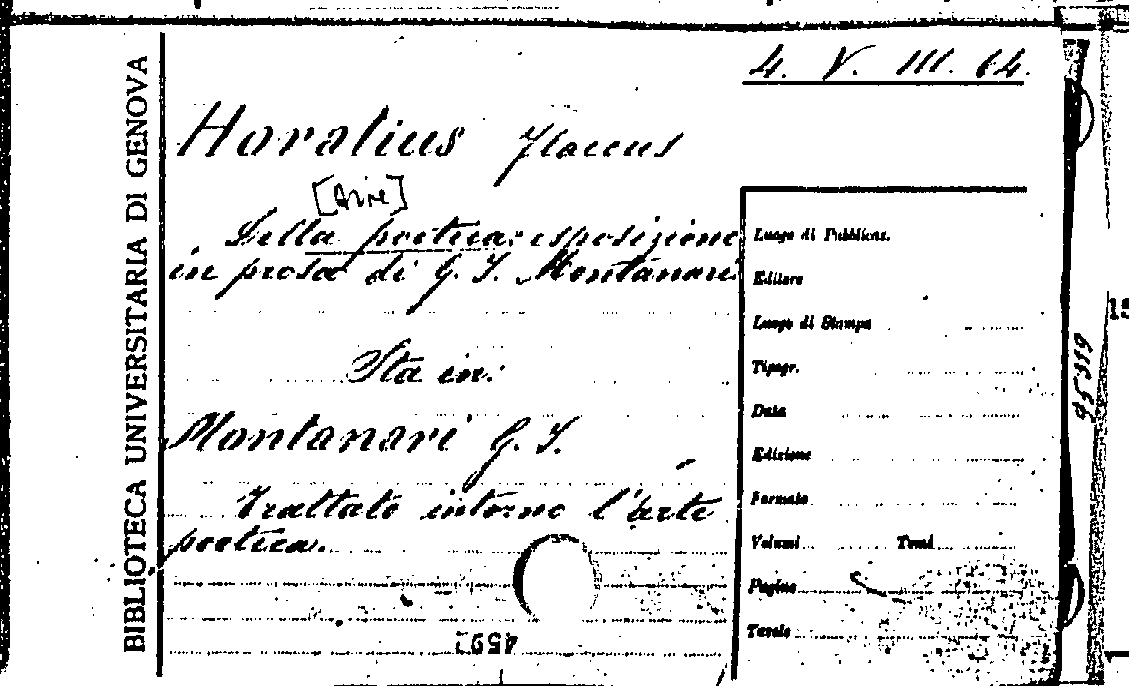 4. V. III. 64.
Horatius Flaccus
[Arte]
Della poetica: esposizione
in prosa di G. I. Montanari
Sta in:
Montanari G. I.
Trattato intorno l'arte
poetica.
BIBLIOTECA UNIVERSITARIA DI GENOVA
Luogo di Pubblicaz.
Editore
Luogo di Stampa
Tipogr.
Data
Edizione
Formato
Volumi Tomi
Pagine
Tavole